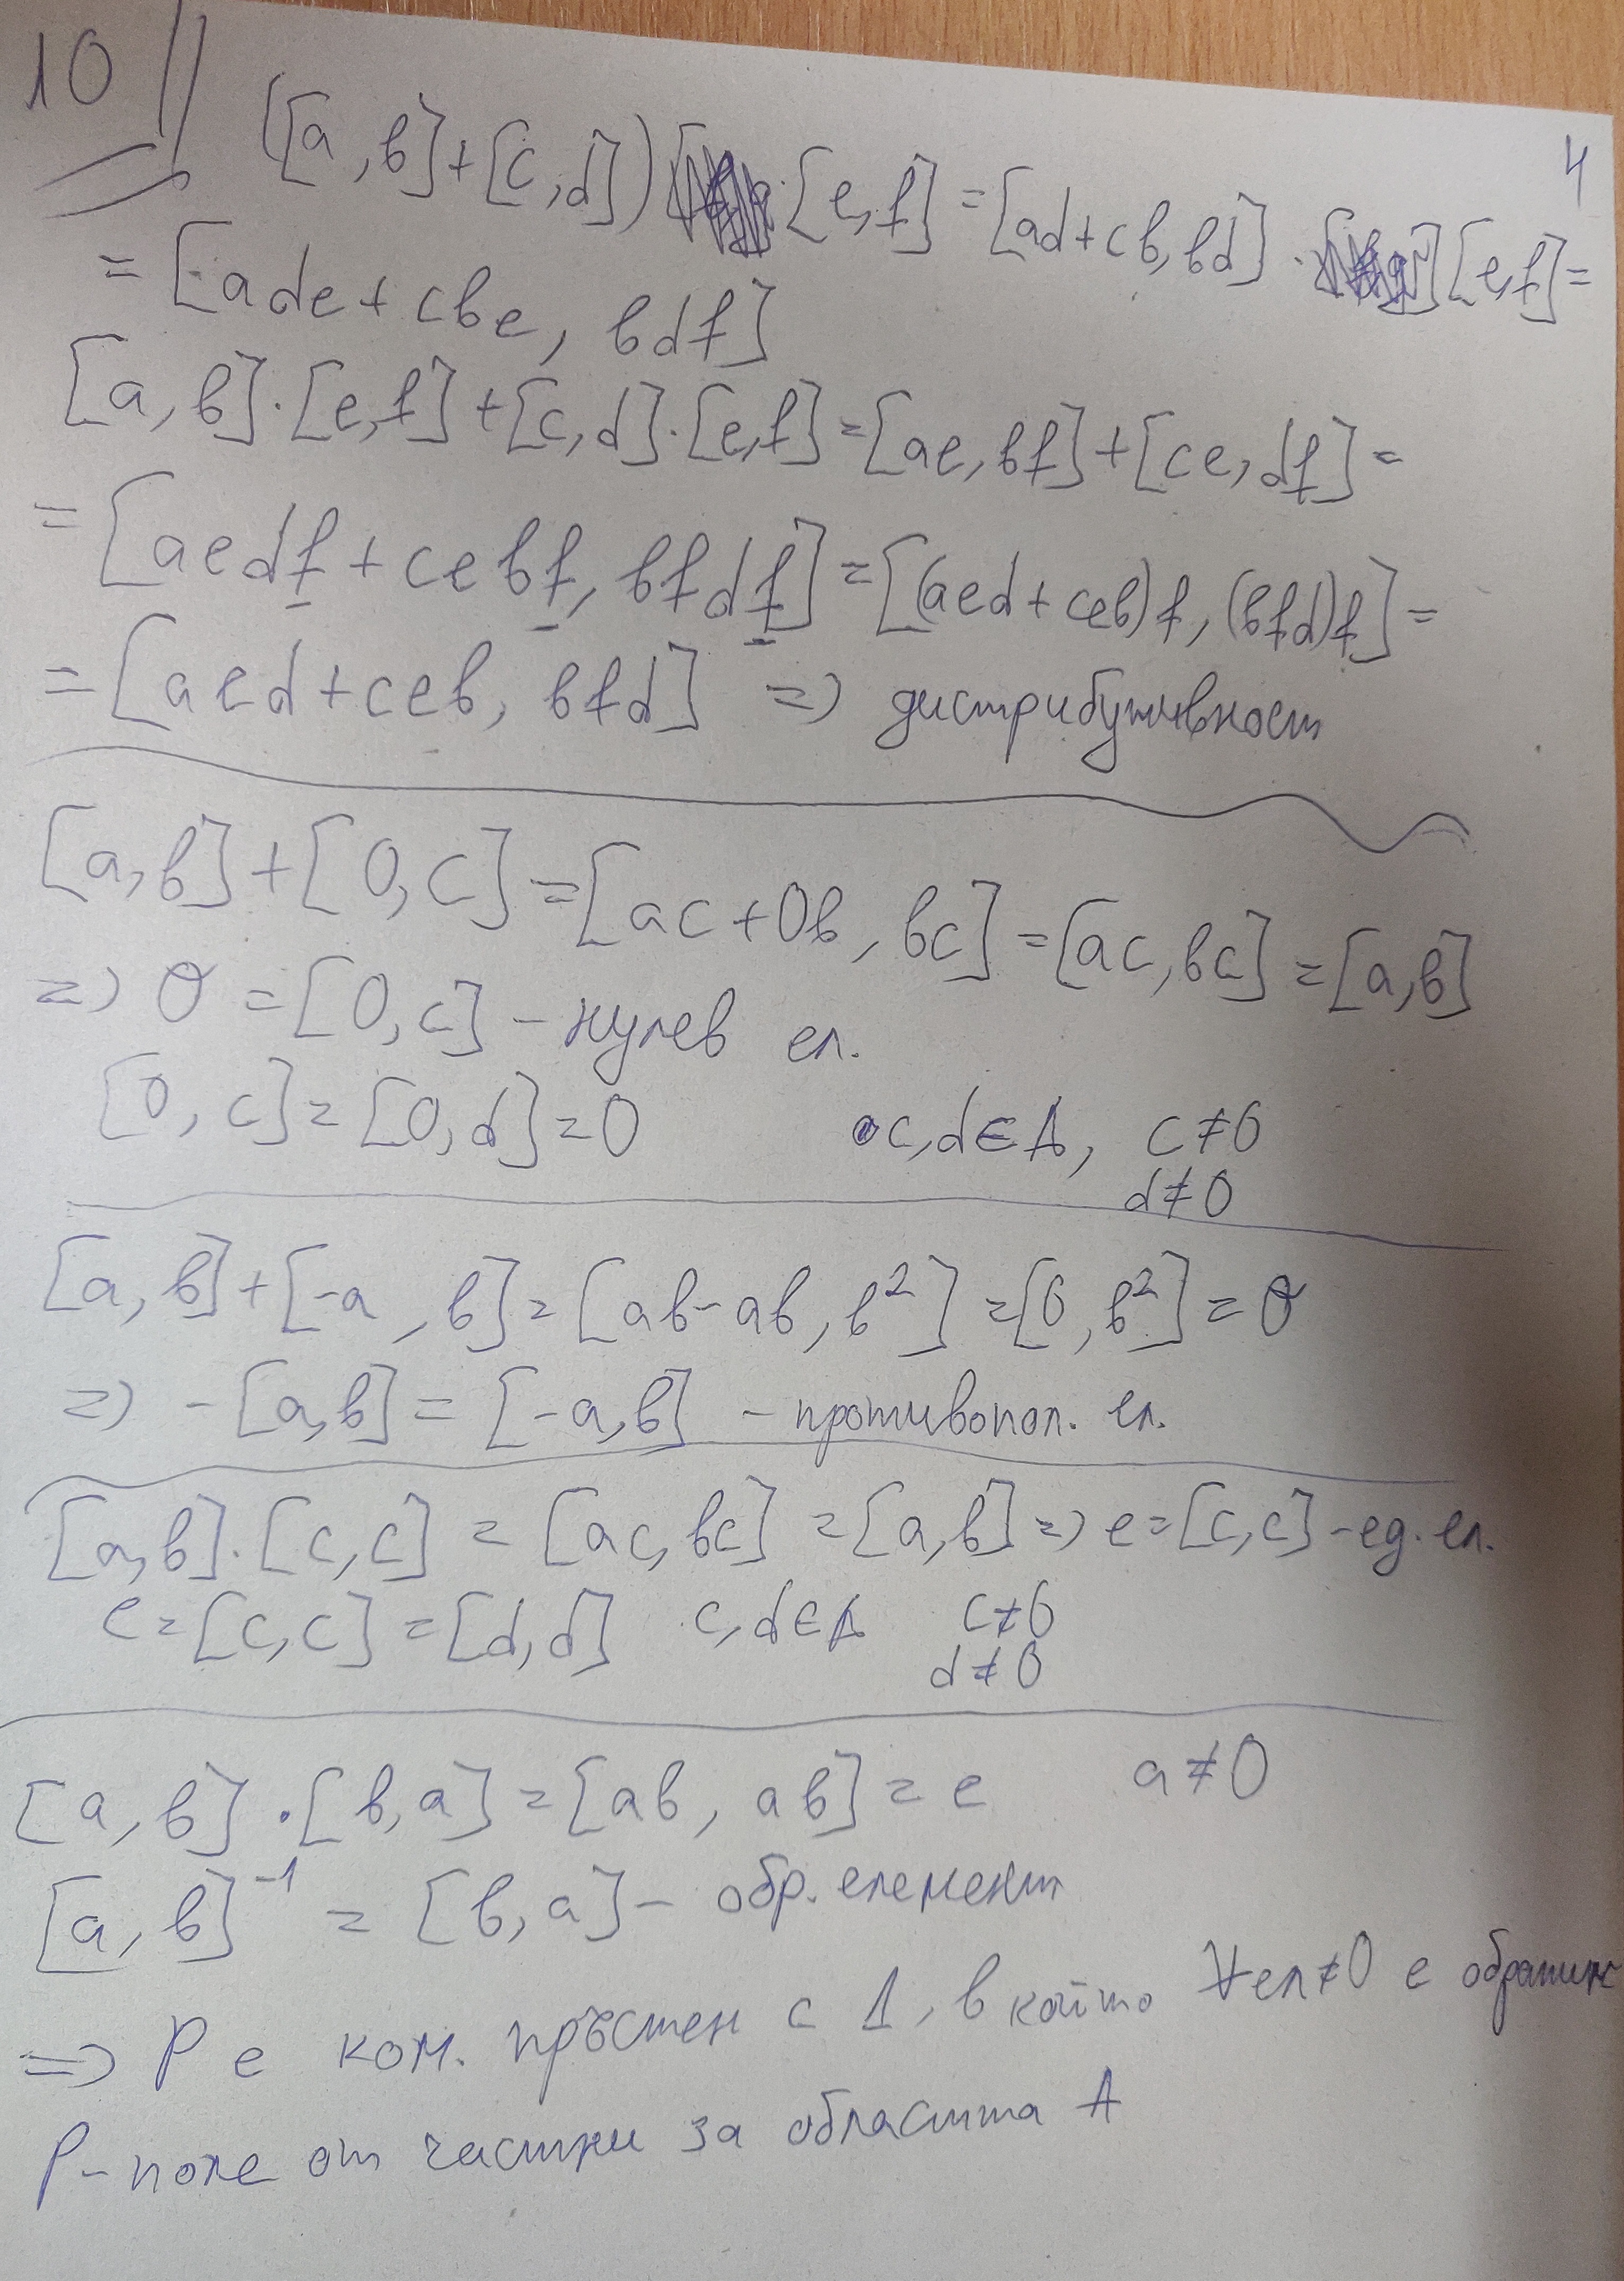 10
4
([a, в] + [c, d]) · [e, f] = [ad + cв, вd] · [e, f] =
= [ade + cвe, вdf]
[a, в] · [e, f] + [c, d] · [e, f] = [ae, вf] + [ce, df] =
= [aedf + ceвf, вfdf] = [(aed + ceв)f, (вfd)f] =
= [aed + ceв, вfd] => дистрибутивност
[a, в] + [0, c] = [ac + 0в, вc] = [ac, вc] = [a, в]
=> θ = [0, c] - нулев ел.
[0, c] = [0, d] = 0 c, d ∈ A, c ≠ 0
d ≠ 0
[a, в] + [-a, в] = [aв - aв, в²] = [0, в²] = θ
=> -[a, в] = [-a, в] - противопол. ел.
[a, в] · [c, c] = [ac, вc] = [a, в] => e = [c, c] - ед. ел.
e = [c, c] = [d, d] c, d ∈ A c ≠ 0
d ≠ 0
[a, в] · [в, a] = [aв, aв] = e a ≠ 0
[a, в]⁻¹ = [в, a] - обр. елемент
=> P е ком. пръстен с 1, в който ∀ ел ≠ 0 е обратим
P - поле от частни за областта A